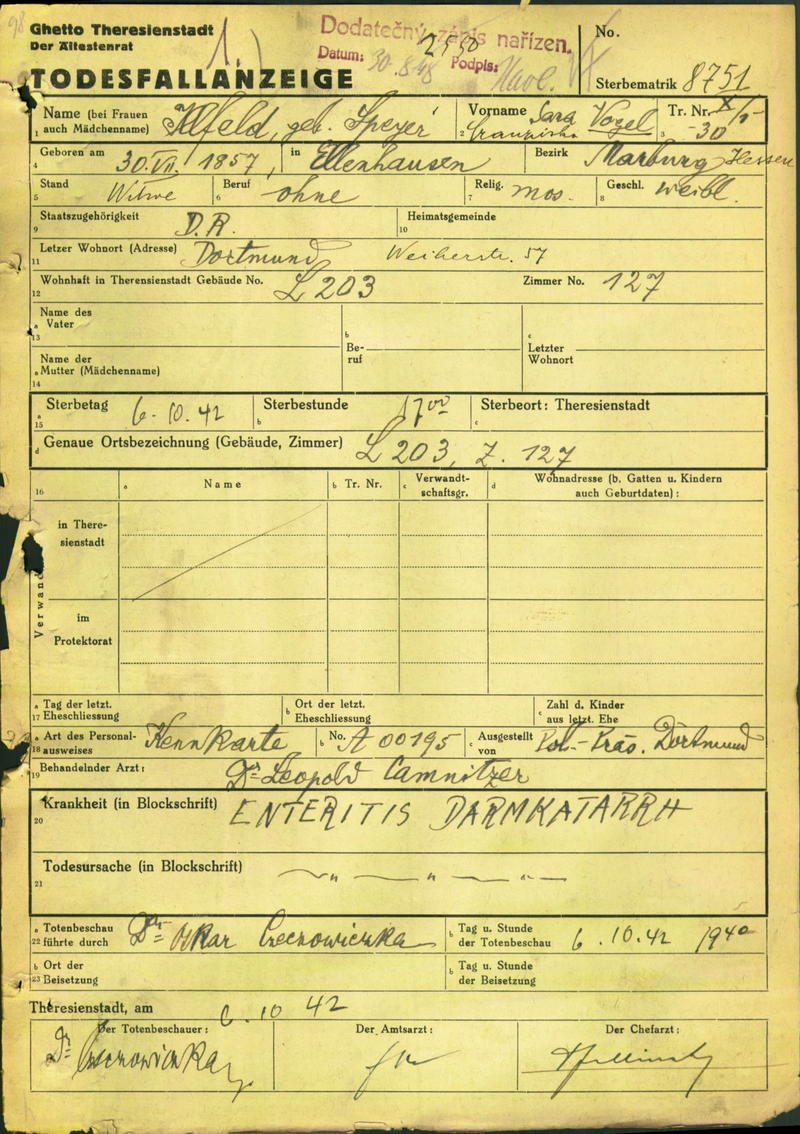 98
Ghetto Theresienstadt
Der Ältestenrat
1
Dodatečný zápis nařízen.
2550
Datum: 30.8.48 Podpis:
No.
TODESFALLANZEIGE
Sterbematrik 8751
Name (bei Frauen
1 auch Mädchenname)
Ilfeld, geb. Speyer
Vorname Sara Vogel
2 Franziska
Tr. Nr. X/1
3 -30
4 Geboren am 30.VII. 1857, in Ellenhausen Bezirk Marburg Hessen
Stand
5 Witwe
Beruf
6 ohne
Relig.
7 mos.
Geschl.
8 weibl.
Staatszugehörigkeit
9 D.R.
Heimatsgemeinde
10
Letzer Wohnort (Adresse)
11 Dortmund Weiherstr. 57
Wohnhaft in Therensienstadt Gebäude No. L 203 Zimmer No. 127
12
Name des
a Vater
13
b
Be-
ruf
c
Letzter
Wohnort
Name der
a Mutter (Mädchenname)
14
Sterbetag 6.10.42
a
15
Sterbestunde 17⁰⁰
b
Sterbeort: Theresienstadt
c
d Genaue Ortsbezeichnung (Gebäude, Zimmer) L 203, Z. 127
16
a Name
b Tr. Nr.
c Verwandt-
schaftsgr.
d Wohnadresse (b. Gatten u. Kindern
auch Geburtdaten):
in There-
sienstadt
im
Protektorat
a Tag der letzt.
17 Eheschliessung
b Ort der letzt.
Eheschliessung
c Zahl d. Kinder
aus letzt. Ehe
a Art des Personal-
18 ausweises
Kennkarte
b No. A 00195
c Ausgestellt
von
Pol.-Präs. Dortmund
19 Behandelnder Arzt: Dr Leopold Camnitzer
Krankheit (in Blockschrift) ENTERITIS DARMKATARRH
20
Todesursache (in Blockschrift) — " — " — " —
21
a Totenbeschau
22 führte durch
Dr Oskar Czechowiczka
b Tag u. Stunde
der Totenbeschau
6.10.42 19⁴⁰
b Ort der
23 Beisetzung
b Tag u. Stunde
der Beisetzung
Theresienstadt, am 6.10 42
Der Totenbeschauer:
Der Amtsarzt:
Der Chefarzt:
Dr Czechowiczka